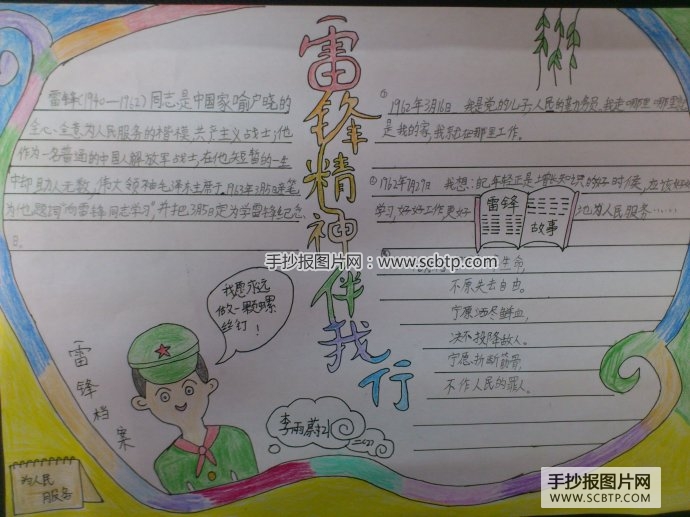 雷锋精神伴我行
雷锋(1940—1962)同志是中国家喻户晓的
全心全意为人民服务的楷模,共产主义战士;他
作为一名普通的中国人解放军战士,在他短暂的一生
中却助人无数,伟大领袖毛泽东主席于1963年3月5日
为他题词"向雷锋同志学习"并把3月5日定为学雷锋纪念
日。
① 1962年3月16日 我是党的儿子,人民的勤务员,我走哪里哪里
是我的家,我就在那里工作。
② 1962年7月29日 我想:
学习,好好工作更好 地为人民服务……
雷锋
故事
生命,
不原失去自由。
宁原洒尽鲜血,
决不投降敌人。
宁愿折断筋骨,
不作人民的罪人。
手抄报图片网:www.scbtp.com
我愿永远
做一颗螺
丝钉!
雷锋档案
李雨蔚
为人民
服务
手抄报图片网
WWW.SCBTP.COM